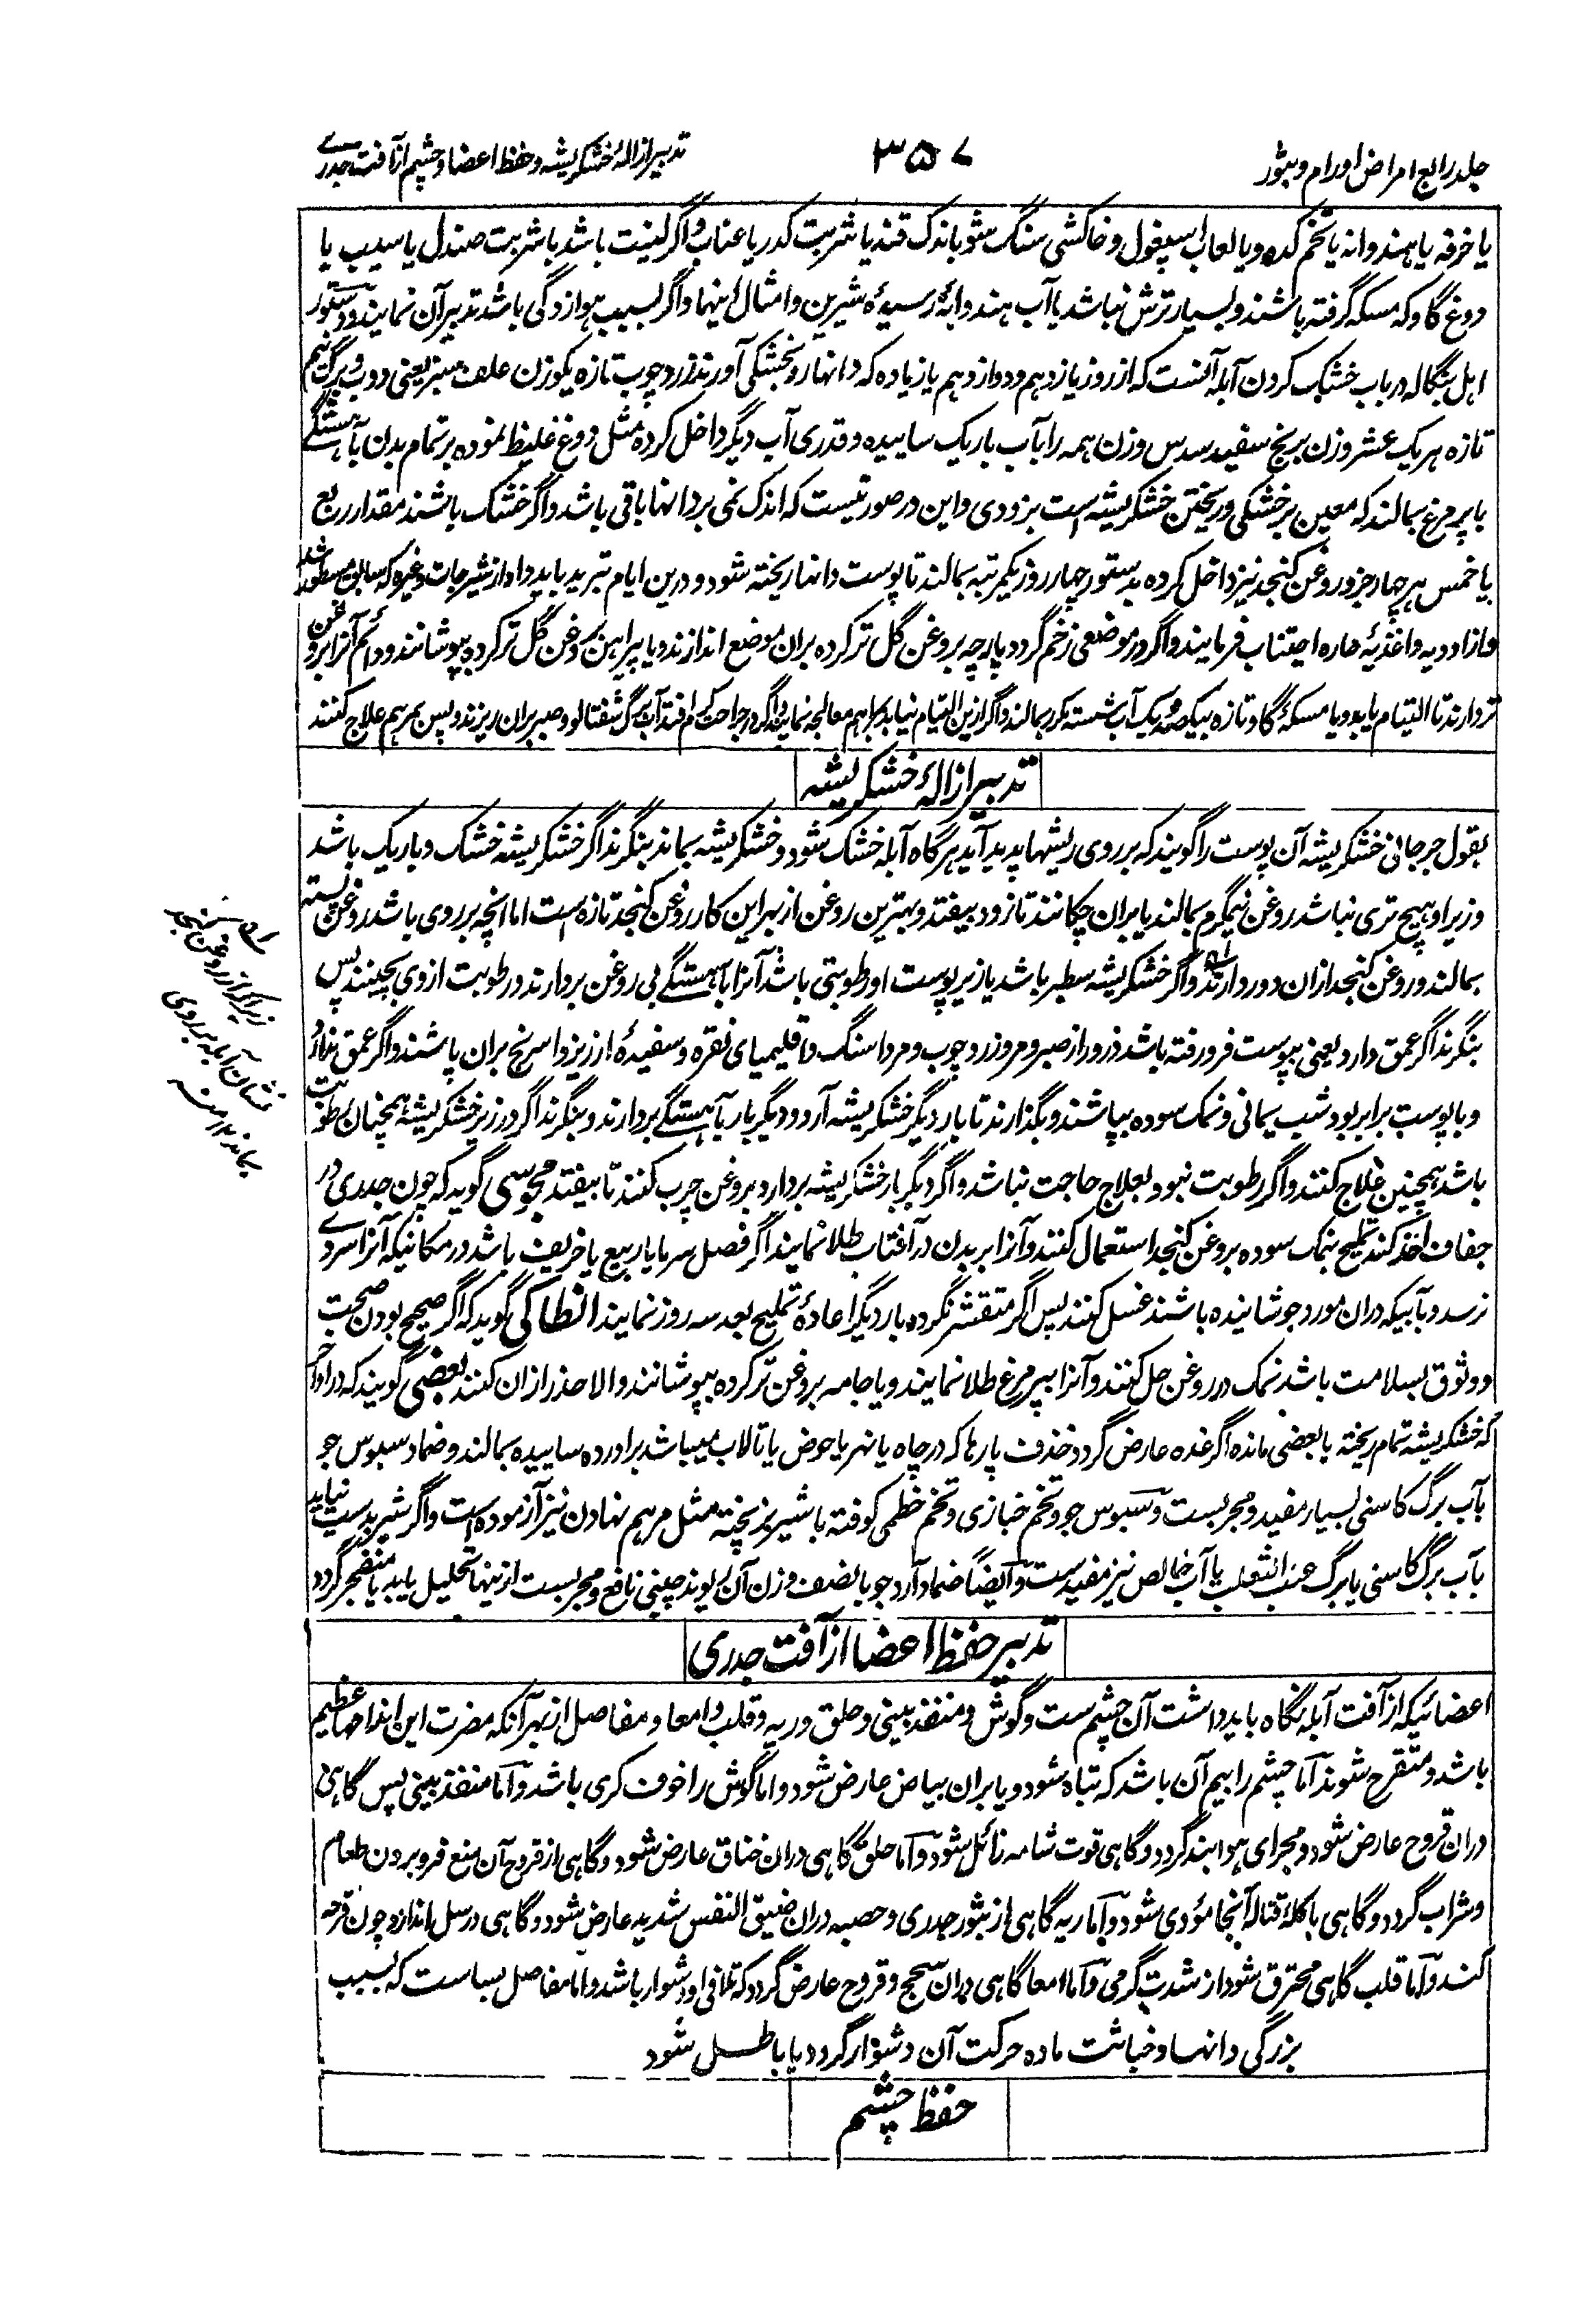 جلد رابع امراض اورام و بثور
۳۵۷
تدبیر ازالهٔ خشکریشه و حفظ اعضا و چشم از آفت جدری
یا خرفه یا هندوانه یا تخم کدو و یا لعاب اسپغول و خاکشی سنگ شو باندک قند یا شربت کدر یا عناب و اگر لینت باشد با شربت صندل یا سیب یا
دوغ گاو که مسکه گرفته باشند و بسیار ترش نباشد یا آب هندوانهٔ رسیدهٔ شیرین و امثال اینها و اگر بسبب هوازدگی باشد تدبیر آن نمایند و دستور
اهل بنگاله در باب خشک کردن آبله آنست که از روز یازدهم و دوازدهم یا زیاده که دانها رو بخشکی آورند زردچوب تازه یکوزن علف سبز یعنی دوب و برگ نیم
تازه هر یک عشر وزن برنج سفید سدس وزن همه را بآب باریک ساییده و قدری آب دیگر داخل کرده مثل دوغ غلیظ نموده بر تمام بدن بآهستگی
با پر مرغ بمالند که معین بر خشکی و ریختن خشکریشه است بزودی و این در صورتیست که اندک نمی بر دانها باقی باشد و اگر خشک باشند مقدار ربع
یا خمس هر چهار جزو روغن کنجد نیز داخل کرده بدستور چهار روز یکمرتبه بمالند تا پوست دانها ریخته شود و درین ایام تبرید باید داد از شیرجات و غیره که سابق مسطور شد
و از ادویه و اغذیهٔ حاره اجتناب فرمایند و اگر در موضعی زخم گردد پارچه بروغن گل تر کرده بران موضع اندازند و یا پیراهن بروغن گل تر کرده بپوشانند و دائم آنرا بروغن
تر دارند تا التیام یابد و یا مسکهٔ گاو تازه بیکصد و یک آب شسته مکرر بمالند و اگر ازین التیام نیابد بمراهم معالجه نمایند و اگر در جراحت کرم افتد آب برگ شفتالو و صبر بران ریزند و پس بمرهم علاج کنند
تدبیر ازالهٔ خشکریشه
بقول جرجانی خشکریشه آن پوست را گویند که بر روی ریشها پدید آید هرگاه آبله خشک شود و خشکریشه بماند بنگرند اگر خشکریشه خشک و باریک باشد
و زیر او هیچ تری نباشد روغن نیمگرم بمالند یا بران چکانند تا زود بیفتد و بهترین روغن از بهر این کار روغن کنجد تازه است اما انچه بر روی باشد روغن پسته
بمالند و روغن کنجد ازان دور دارند و اگر خشکریشه سطبر باشد یا زیر پوست او رطوبتی باشد آنرا بآهستگی بی روغن بردارند و رطوبت از وی بچینند پس
بنگرند اگر عمق دارد یعنی بپوست فرو رفته باشد ذرور از صبر و مر و زردچوب و مرداسنگ و قلیمیای نقره و سفیدهٔ ارزیز و اسرنج بران پاشند و اگر عمق ندارد
و با پوست برابر بود شب یمانی و نمک سوده بپاشند و بگذارند تا بار دیگر خشکریشه آرد و دیگر بار بآهستگی بردارند و بنگرند اگر در زیر خشکریشه همچنان رطوبت
باشد همچنین علاج کنند و اگر رطوبت نبود بعلاج حاجت نباشد و اگر دیگر بار خشکریشه بردارد بروغن چرب کنند تا بیفتد مجوسی گوید که چون جدری در
جفاف اخذ کند تملیح بنمک سوده بروغن کنجد استعمال کنند و آنرا بر بدن در آفتاب طلا نمایند اگر فصل سرما یا ربیع یا خریف باشد در مکانیکه آنرا سردی
نرسد و بآبیکه دران مورد جوشانیده باشند غسل کنند پس اگر متقشر نگردد بار دیگر اعادهٔ تملیح بعد سه روز نمایند انطاکی گوید که اگر صحیح بودن صحت
و وثوق بسلامت باشد نمک در روغن حل کنند و آنرا بپر مرغ طلا نمایند و یا جامه بروغن تر کرده بپوشانند والا حذر ازان کنند بعضی گویند که در اواخر
که خشکریشه تمام ریخته یا بعضی مانده اگر غده عارض گردد خذف پارها که در چاه یا نهر یا حوض یا تالاب میباشد برآورده ساییده بمالند و ضماد سبوس جو
بآب برگ کاسنی بسیار مفید و مجربست و سبوس جو و تخم خبازی و تخم خطمی کوفته با شیر بز پخته مثل مرهم نهادن نیز آزموده است و اگر شیر بدست نیاید
بآب برگ کاسنی یا برگ عنب الثعلب یا آب خالص نیز مفیدست و ایضاً ضماد آرد جو با نصف وزن آن ریوند چینی نافع و مجربست ازینها تحلیل یابد یا منفجر گردد
تدبیر حفظ اعضا از آفت جدری
اعضائیکه از آفت آبله نگاه باید داشت آن چشم ست و گوش و منفذ بینی و حلق و ریه و قلب و امعا و مفاصل از بهر آنکه مضرت این اندامها عظیم
باشد و متقرح شوند اما چشم را بیم آن باشد که تباه شود و یا بران بیاض عارض شود و اما گوش را خوف کری باشد و اما منفذ بینی پس گاهی
دران قروح عارض شود و مجرای هوا بند گردد و گاهی قوت شامه زائل شود و اما حلق گاهی دران خناق عارض شود و گاهی از قروح آن منع فرو بردن طعام
و شراب گردد و گاهی باکلهٔ قتاله آنجا مؤدی شود و اما ریه گاهی از بثور جدری و حصبه دران ضیق النفس شدید عارض شود و گاهی در سل اندازد چون قرحه
کند و اما قلب گاهی محترق شود از شدت گرمی و اما امعا گاهی دران سحج و قروح عارض گردد که تلافی او دشوار باشد و اما مفاصل بسیاست که بسبب
بزرگی دانها و خباثت ماده حرکت آن دشوار گردد یا باطل شود
حفظ چشم
زیراکه از روغن کنجد
نشان آبله بر روی
بماند ۱۲ منه